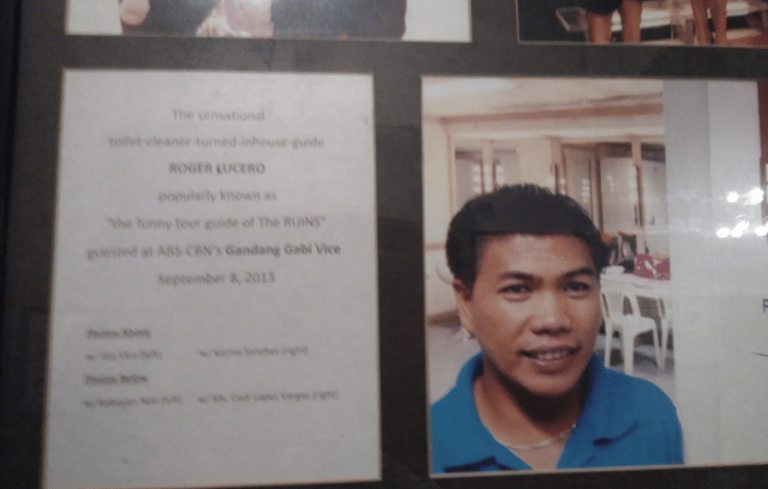 The sensational
toilet-cleaner-turned-inhouse-guide
ROGER LUCERO
popularly known as
"the funny tour guide of The RUINS"
guested at ABS-CBN's Gandang Gabi Vice
September 8, 2013
Photos Above
w/ Vice (left) w/ Karina Sanchez (right)
Photos Below
w/ Kabayan Noli (left) w/ Ms. Cory Lopez Vargas (right)